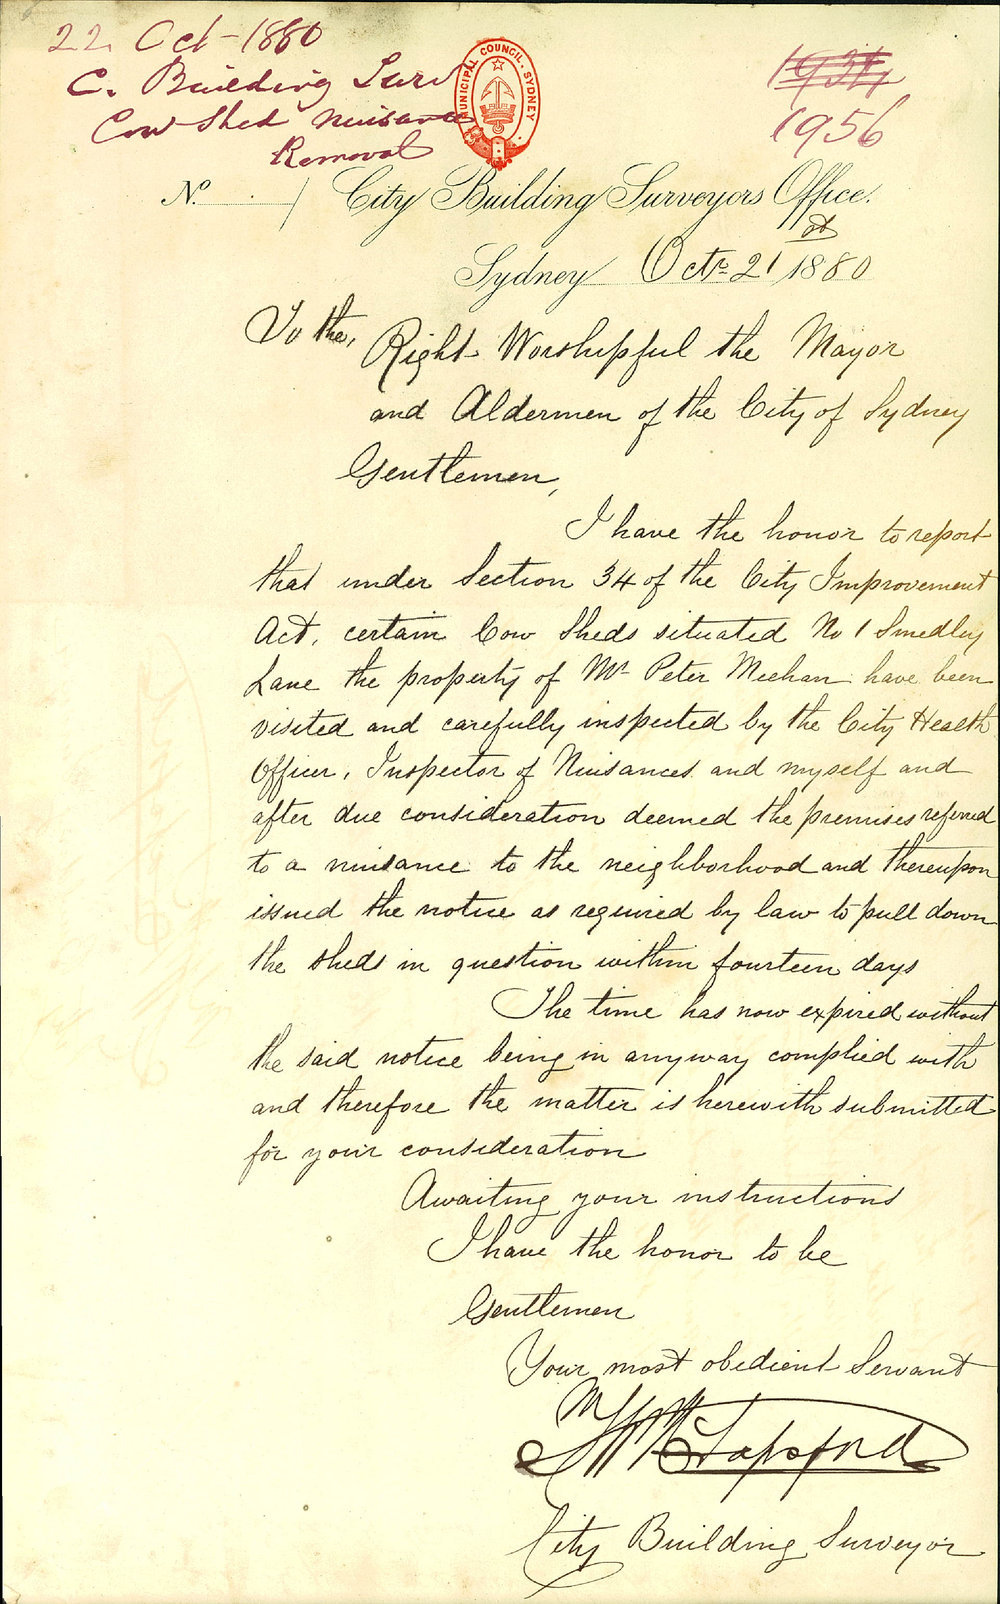 22 Oct - 1880
C. Building Surv
Cow Shed Nuisance
Removal
MUNICIPAL COUNCIL. SYDNEY
1956
No. / City Building Surveyors Office.
Sydney Octr 21st 1880
To the,
Right Worshipful the Mayor
and Aldermen of the City of Sydney
Gentlemen,
I have the honor to report
that under Section 34 of the City Improvement
Act, certain Cow Sheds situated No 1 Smedley
Lane the property of Mr Peter Meehan have been
visited and carefully inspected by the City Health
Officer, Inspector of Nuisances and myself and
after due consideration deemed the premises referred
to a nuisance to the neighborhood and thereupon
issued the notice as required by law to pull down
the sheds in question within fourteen days
The time has now expired without
the said notice being in anyway complied with
and therefore the matter is herewith submitted
for your consideration
Awaiting your instructions
I have the honor to be
Gentlemen
Your most obedient Servant
Sapsford
City Building Surveyor